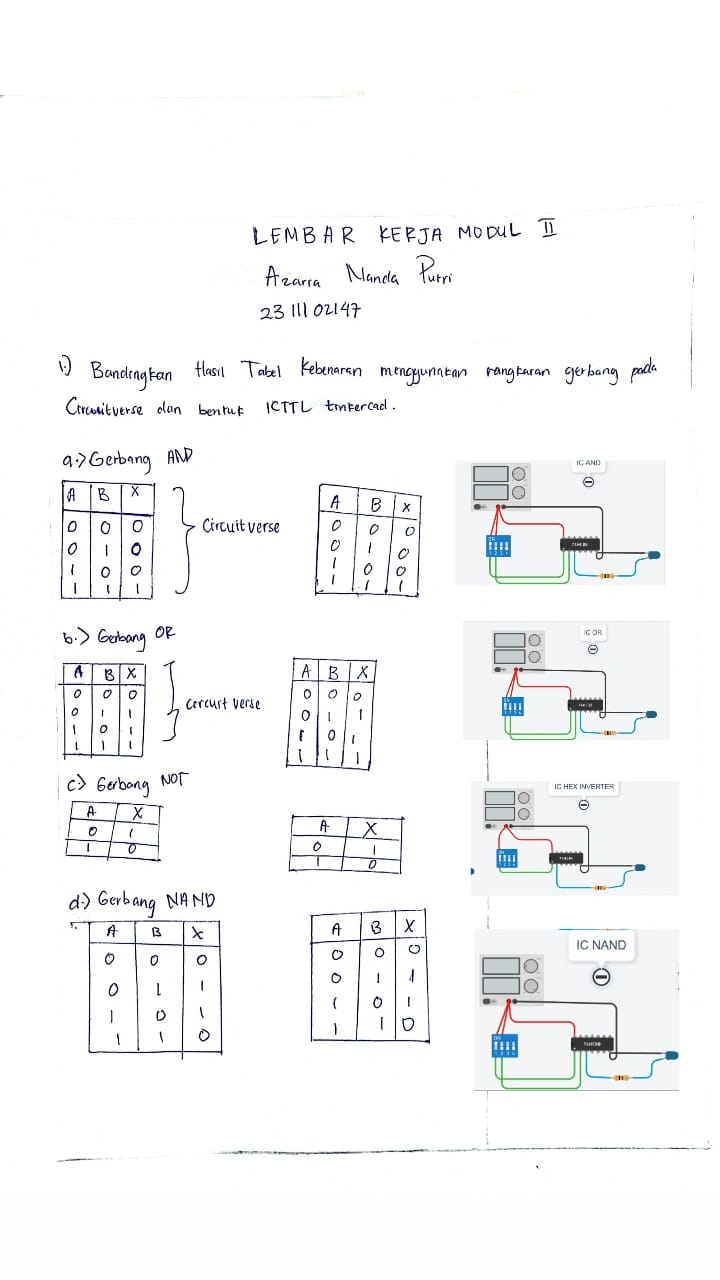 LEMBAR KERJA MODUL II
Azarra Nanda Putri
2311102147
1.) Bandingkan Hasil Tabel Kebenaran menggunakan rangkaian gerbang pada
Circuitverse dan bentuk ICTTL tinkercad.
a.> Gerbang AND
IC AND
A B X
0 0 0
0 1 0
1 0 0
1 1 1
Circuitverse
A B X
0 0 0
0 1 0
1 0 0
1 1 1
b.> Gerbang OR
IC OR
A B X
0 0 0
0 1 1
1 0 1
1 1 1
Circuit verse
A B X
0 0 0
0 1 1
1 0 1
1 1 1
c.> Gerbang NOT
IC HEX INVERTER
A X
0 1
1 0
A X
0 1
1 0
d.) Gerbang NAND
IC NAND
A B X
0 0 0
0 1 1
1 0 1
1 1 0
A B X
0 0 0
0 1 1
1 0 1
1 1 0